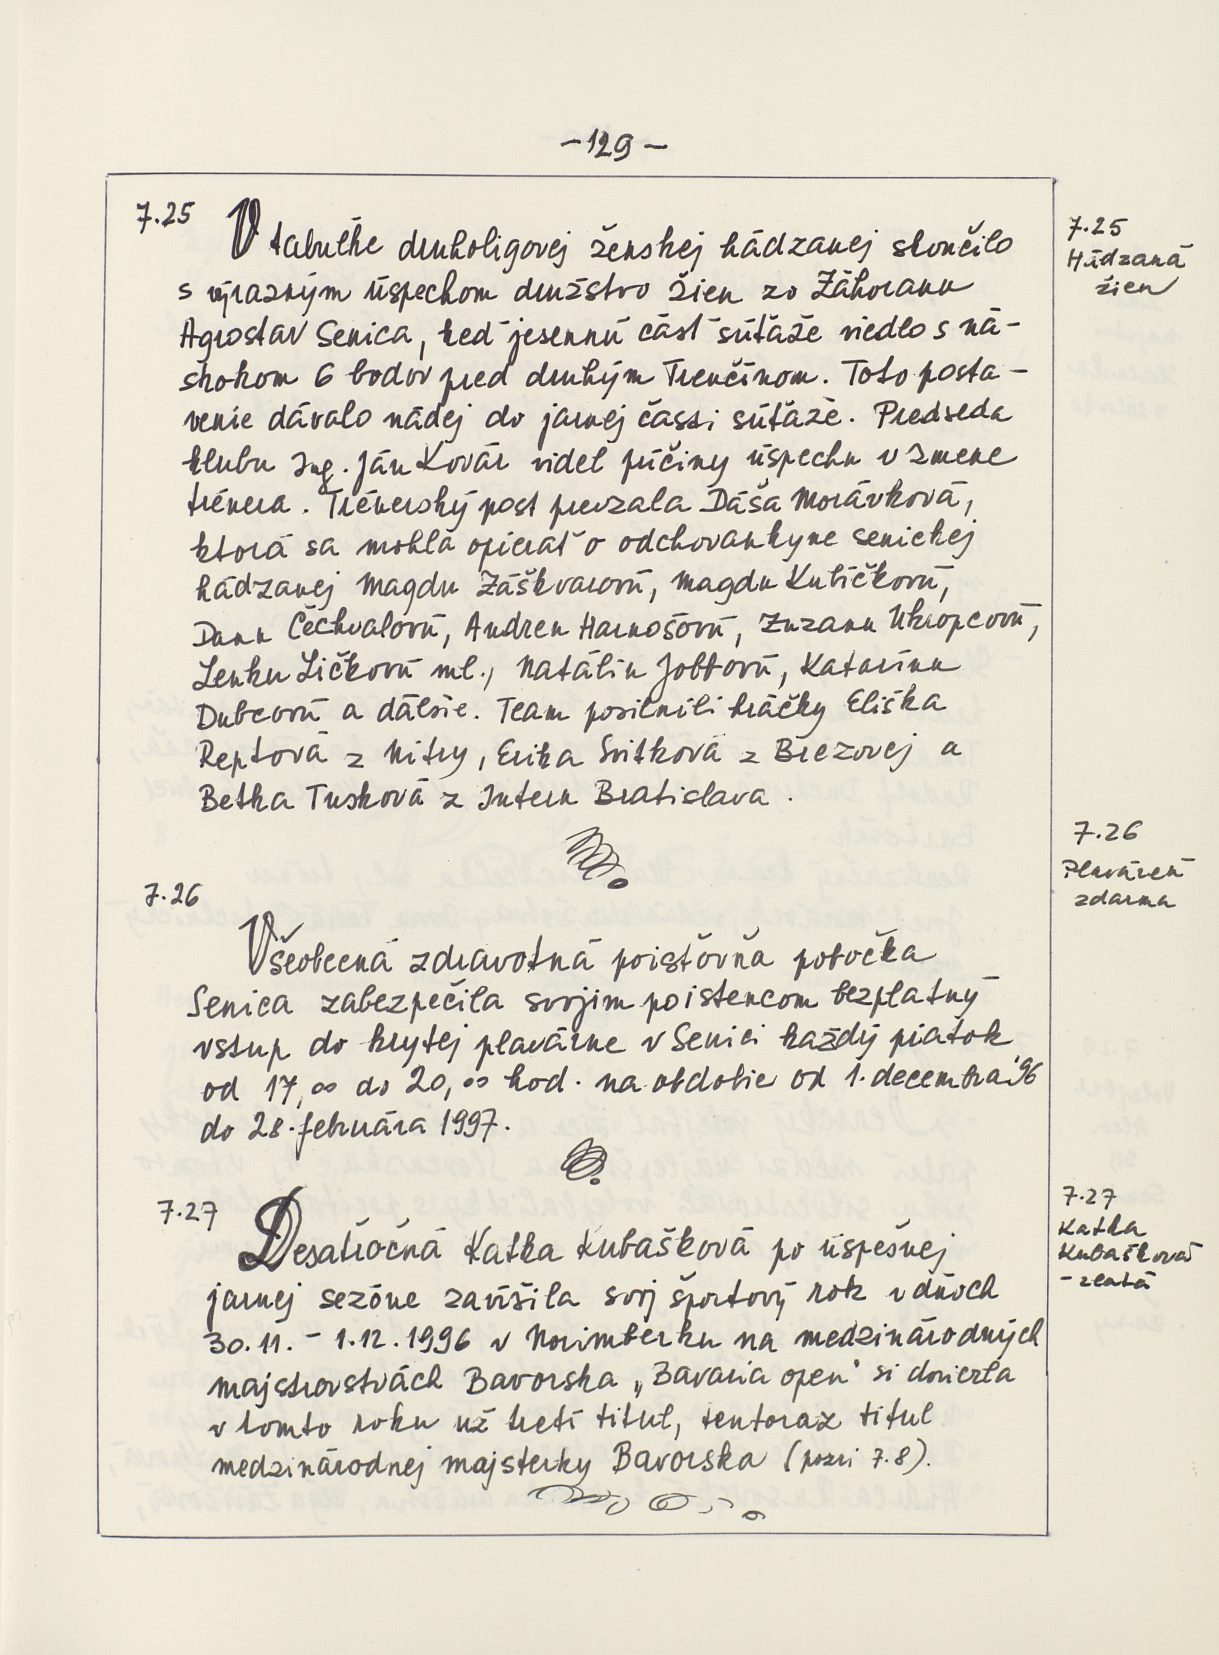 -129-
7.25
V tabuľke druholigovej ženskej hádzanej skončilo
s výrazným úspechom družstvo žien zo Záhoranu
Agrostav Senica, keď jesennú časť súťaže viedlo s ná-
skokom 6 bodov pred druhým Trenčínom. Toto posta-
venie dávalo nádej do jarnej časti súťaže. Predseda
klubu Ing. Ján Kovár videl príčiny úspechu v zmene
trénera. Trénerský post prevzala Dáša Morávková,
ktorá sa mohla opierať o odchovankyne senickej
hádzanej Magdu Záškvarovú, Magdu Kubíčkovú,
Danu Čechvalovú, Andreu Harnošovú, Zuzanu Ukropcovú,
Lenku Ličkovú ml., Natáliu Jobbovú, Katarínu
Dubcovú a ďalšie. Team posilnili hráčky Eliška
Reptová z Nitry, Erika Svitková z Brezovej a
Betka Tusková z Interu Bratislava.
7.25
Hádzaná
žien
7.26
Všeobecná zdravotná poisťovňa pobočka
Senica zabezpečila svojim poistencom bezplatný
vstup do krytej plavárne v Senici každý piatok
od 17,00 do 20,00 hod. na obdobie od 1. decembra '96
do 28. februára 1997.
7.26
Plaváreň
zdarma
7.27
Desaťročná Katka Kubašková po úspešnej
jarnej sezóne zavŕšila svoj športový rok v dňoch
30.11. - 1.12.1996 v Norimberku na medzinárodných
majstrovstvách Bavorska „Bavaria open" si doviezla
v tomto roku už tretí titul, tentoraz titul
medzinárodnej majsterky Bavorska (pozri 7.8).
7.27
Katka
Kubašková